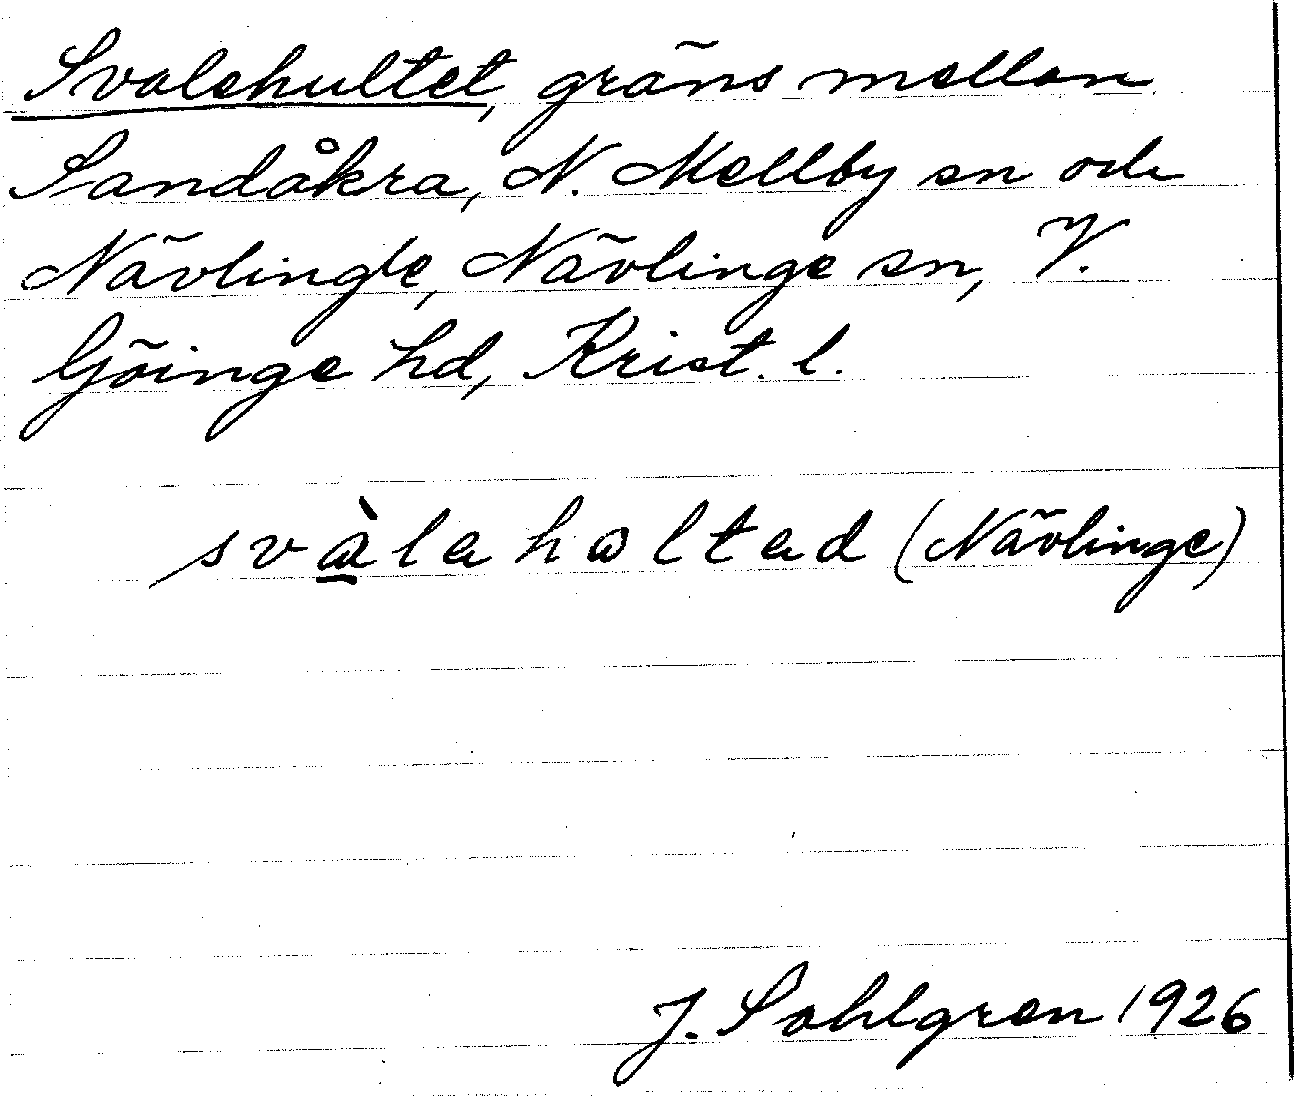 Svalehultet, gräns mellan
Sandåkra, N. Mellby sn och
Nävlinge, Nävlinge sn, V.
Göinge hd, Krist. l.
svàlahaltad (Nävlinge)
J. Sahlgren 1926